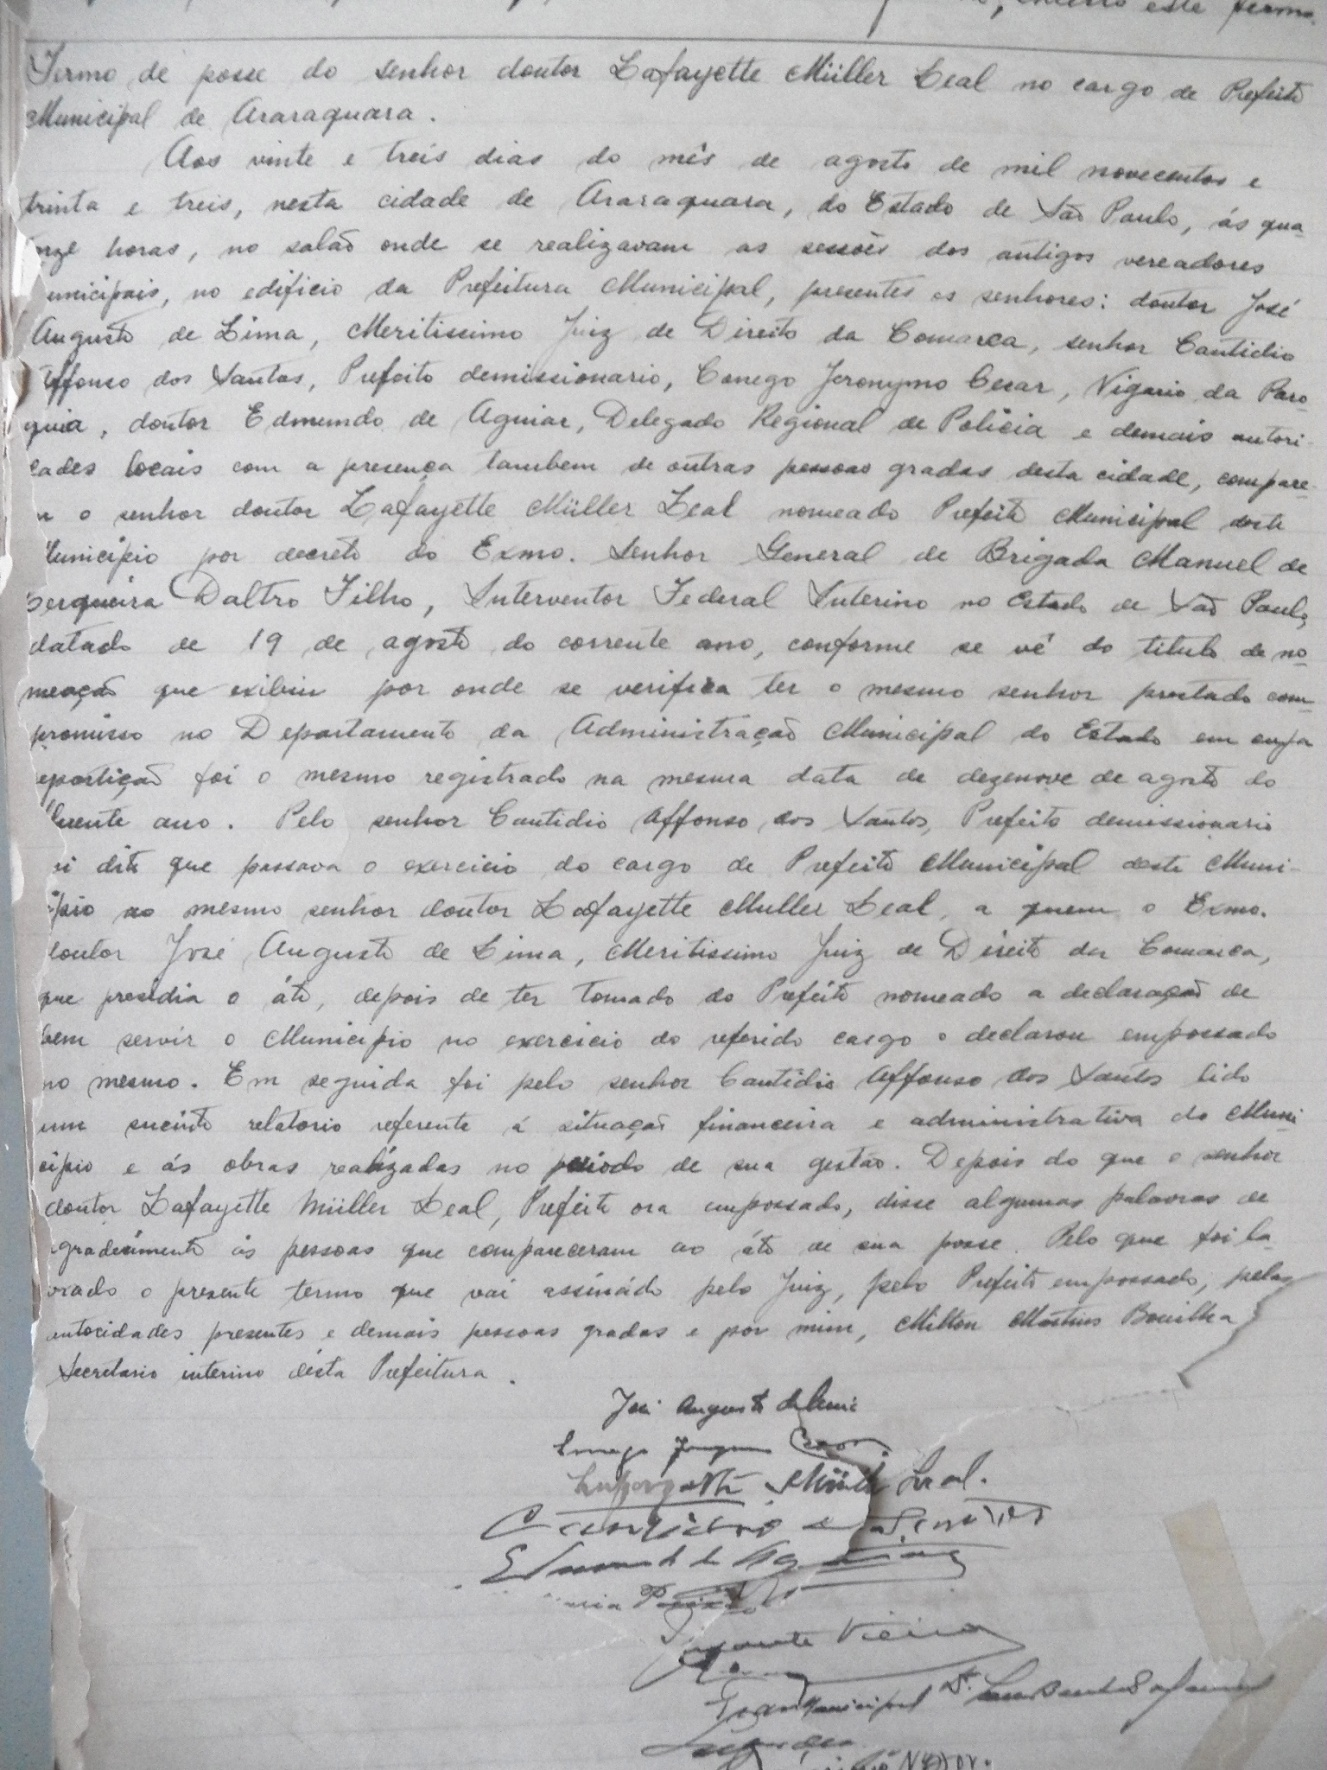 encerro este termo.
Termo de posse do senhor doutor Lafayette Müller Leal no cargo de Prefeito
Municipal de Araraquara.
Aos vinte e treis dias do mês de agosto de mil novecentos e
trinta e treis, nesta cidade de Araraquara, do Estado de São Paulo, ás qua-
torze horas, no salão onde se realizavam as sessões dos antigos vereadores
unicipais, no edificio da Prefeitura Municipal, presentes os senhores: doutor José
Augusto de Lima, Meritissimo Juiz de Direito da Comarca, senhor Cantidio
Affonso dos Santos, Prefeito demissionario, Conego Jeronymo Cesar, Vigario da Paro-
quia, doutor Edmundo de Aguiar, Delegado Regional de Policia e demais autori-
dades locais com a presença tambem de outras pessoas gradas desta cidade, compare-
u o senhor doutor Lafayette Müller Leal nomeado Prefeito Municipal deste
Municipio por decreto do Exmo. Senhor General de Brigada Manuel de
Cerqueira Daltro Filho, Interventor Federal Interino no Estado de São Paulo,
datado de 19 de agosto do corrente ano, conforme se vê do titulo de no-
meação que exibiu por onde se verifica ter o mesmo senhor prestado com-
promisso no Departamento da Administração Municipal do Estado em cuja
epartição foi o mesmo registrado na mesma data de dezenove de agosto do
rrente ano. Pelo senhor Cantidio Affonso dos Santos, Prefeito demissionario
oi dito que passava o exercicio do cargo de Prefeito Municipal deste Muni-
ipio ao mesmo senhor doutor Lafayette Muller Leal, a quem o Exmo.
doutor José Augusto de Lima, Meritissimo Juiz de Direito da Comarca,
que presidia o áto, depois de ter tomado do Prefeito nomeado a declaração de
bem servir o Municipio no exercicio do referido cargo o declarou empossado
no mesmo. Em seguida foi pelo senhor Cantidio Affonso dos Santos lido
um sucinto relatorio referente á situação financeira e administrativa do Muni-
cipio e ás obras realizadas no periodo de sua gestão. Depois do que o senhor
doutor Lafayette Müller Leal, Prefeito ora empossado, disse algumas palavras de
agradecimento ás pessoas que compareceram ao áto de sua posse. Pelo que foi la-
vrado o presente termo que vai assinádo pelo Juiz, pelo Prefeito empossado, pelas
autoridades presentes e demais pessoas gradas e por mim, Milton Martins Bonilha
Secretario interino désta Prefeitura.
José Augusto de Lima
Conego Jeronymo Cesar
Lafayette Müller Leal.
Cantidio A. Santos
Edmundo de Aguiar
Vieira
Municipal Dr.